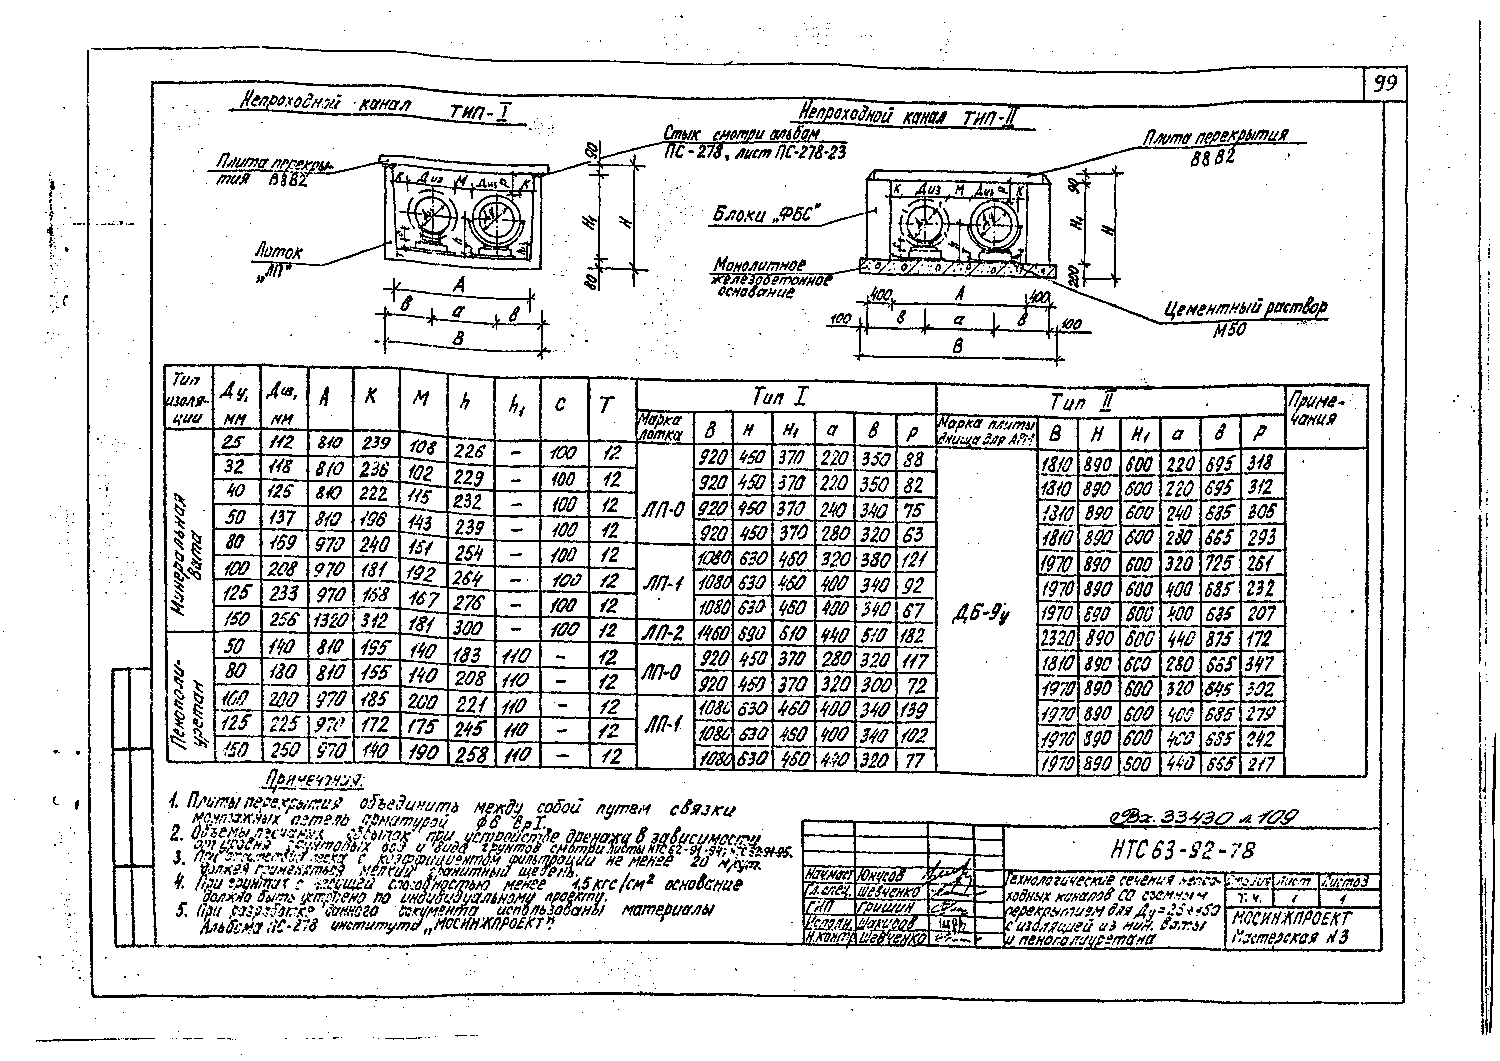 99
Непроходной канал ТИП-I
Непроходной канал ТИП-II
Стык смотри альбом
ПС-278, лист ПС-278-23
Плита перекры-
тия В8В2
Плита перекрытия
В8В2
Лоток
„ЛП"
Блоки „ФБС"
Монолитное
железобетонное
основание
Цементный раствор
М50
К Диз М Диз Р К
К Диз М Диз Р К
90 H₁ H 80
90 H₁ H 200
А
в а в
В
400 А 400
100 в а в 100
В
Тип изоля-ции | Ду, мм | Диз, мм | А | К | М | h | h₁ | с | Т | Тип I | Тип II | Приме-чания
Марка лотка | В | Н | Н₁ | а | в | Р | Марка плиты днища для АРН | В | Н | Н₁ | а | в | Р
Минеральная вата
25 112 810 239 108 226 – 100 12 ЛП-0 920 450 370 220 350 88 ДБ-9у 1810 890 600 220 695 318
32 118 810 236 102 229 – 100 12 920 450 370 220 350 82 1810 890 600 220 695 312
40 125 810 222 115 232 – 100 12 920 450 370 240 340 75 1810 890 600 240 685 305
50 137 810 196 143 239 – 100 12 920 450 370 280 320 63 1810 890 600 280 665 293
80 169 970 240 151 254 – 100 12 ЛП-1 1080 630 460 320 380 121 1970 890 600 320 725 261
100 208 970 181 192 264 – 100 12 1080 630 460 400 340 92 1970 890 600 400 685 232
125 233 970 168 167 276 – 100 12 1080 630 460 400 340 67 1970 890 600 400 685 207
150 256 1320 312 181 300 – 100 12 ЛП-2 1460 690 510 440 510 182 2320 890 600 440 875 172
Пенополи-уретан
50 140 810 195 140 183 110 – 12 ЛП-0 920 450 370 280 320 117 1810 890 600 280 665 347
80 180 810 155 140 208 110 – 12 920 450 370 320 300 72 1970 890 600 320 645 302
100 200 970 185 200 221 110 – 12 ЛП-1 1080 630 460 400 340 139 1970 890 600 400 685 279
125 225 970 172 175 245 110 – 12 1080 630 460 400 340 102 1970 890 600 400 685 242
150 250 970 140 190 258 110 – 12 1080 630 460 440 320 77 1970 890 600 440 665 217
Примечания:
1. Плиты перекрытия объединить между собой путем связки
монтажных петель арматурой ф6 ВрI.
2. Объемы песчаных обсыпок при устройстве дренажа в зависимости
от уровня грунтовых вод и вида грунтов смотри листы
3. При отсутствии песка с коэффициентом фильтрации не менее 20 м/сут.
должен применяться мелкий гранитный щебень.
4. При грунтах с несущей способностью менее 1,5 кгс/см² основание
должно быть устроено по индивидуальному проекту.
5. При разработке данного документа использованы материалы
Альбома ПС-278 института „МОСИНЖПРОЕКТ".
Вх. 33430 л. 109
НТС 63-92-78
Нач.маст Юнусов
Гл.спец. Шевченко
ГИП Гришин
Исполн.
Н.контр Шевченко
Технологические сечения непро-
ходных каналов со съемным
перекрытием для Ду=25÷150
с изоляцией из мин. ваты
и пенополиуретана
Стадия Лист Листов
Т.ч. 1 1
МОСИНЖПРОЕКТ
Мастерская N3